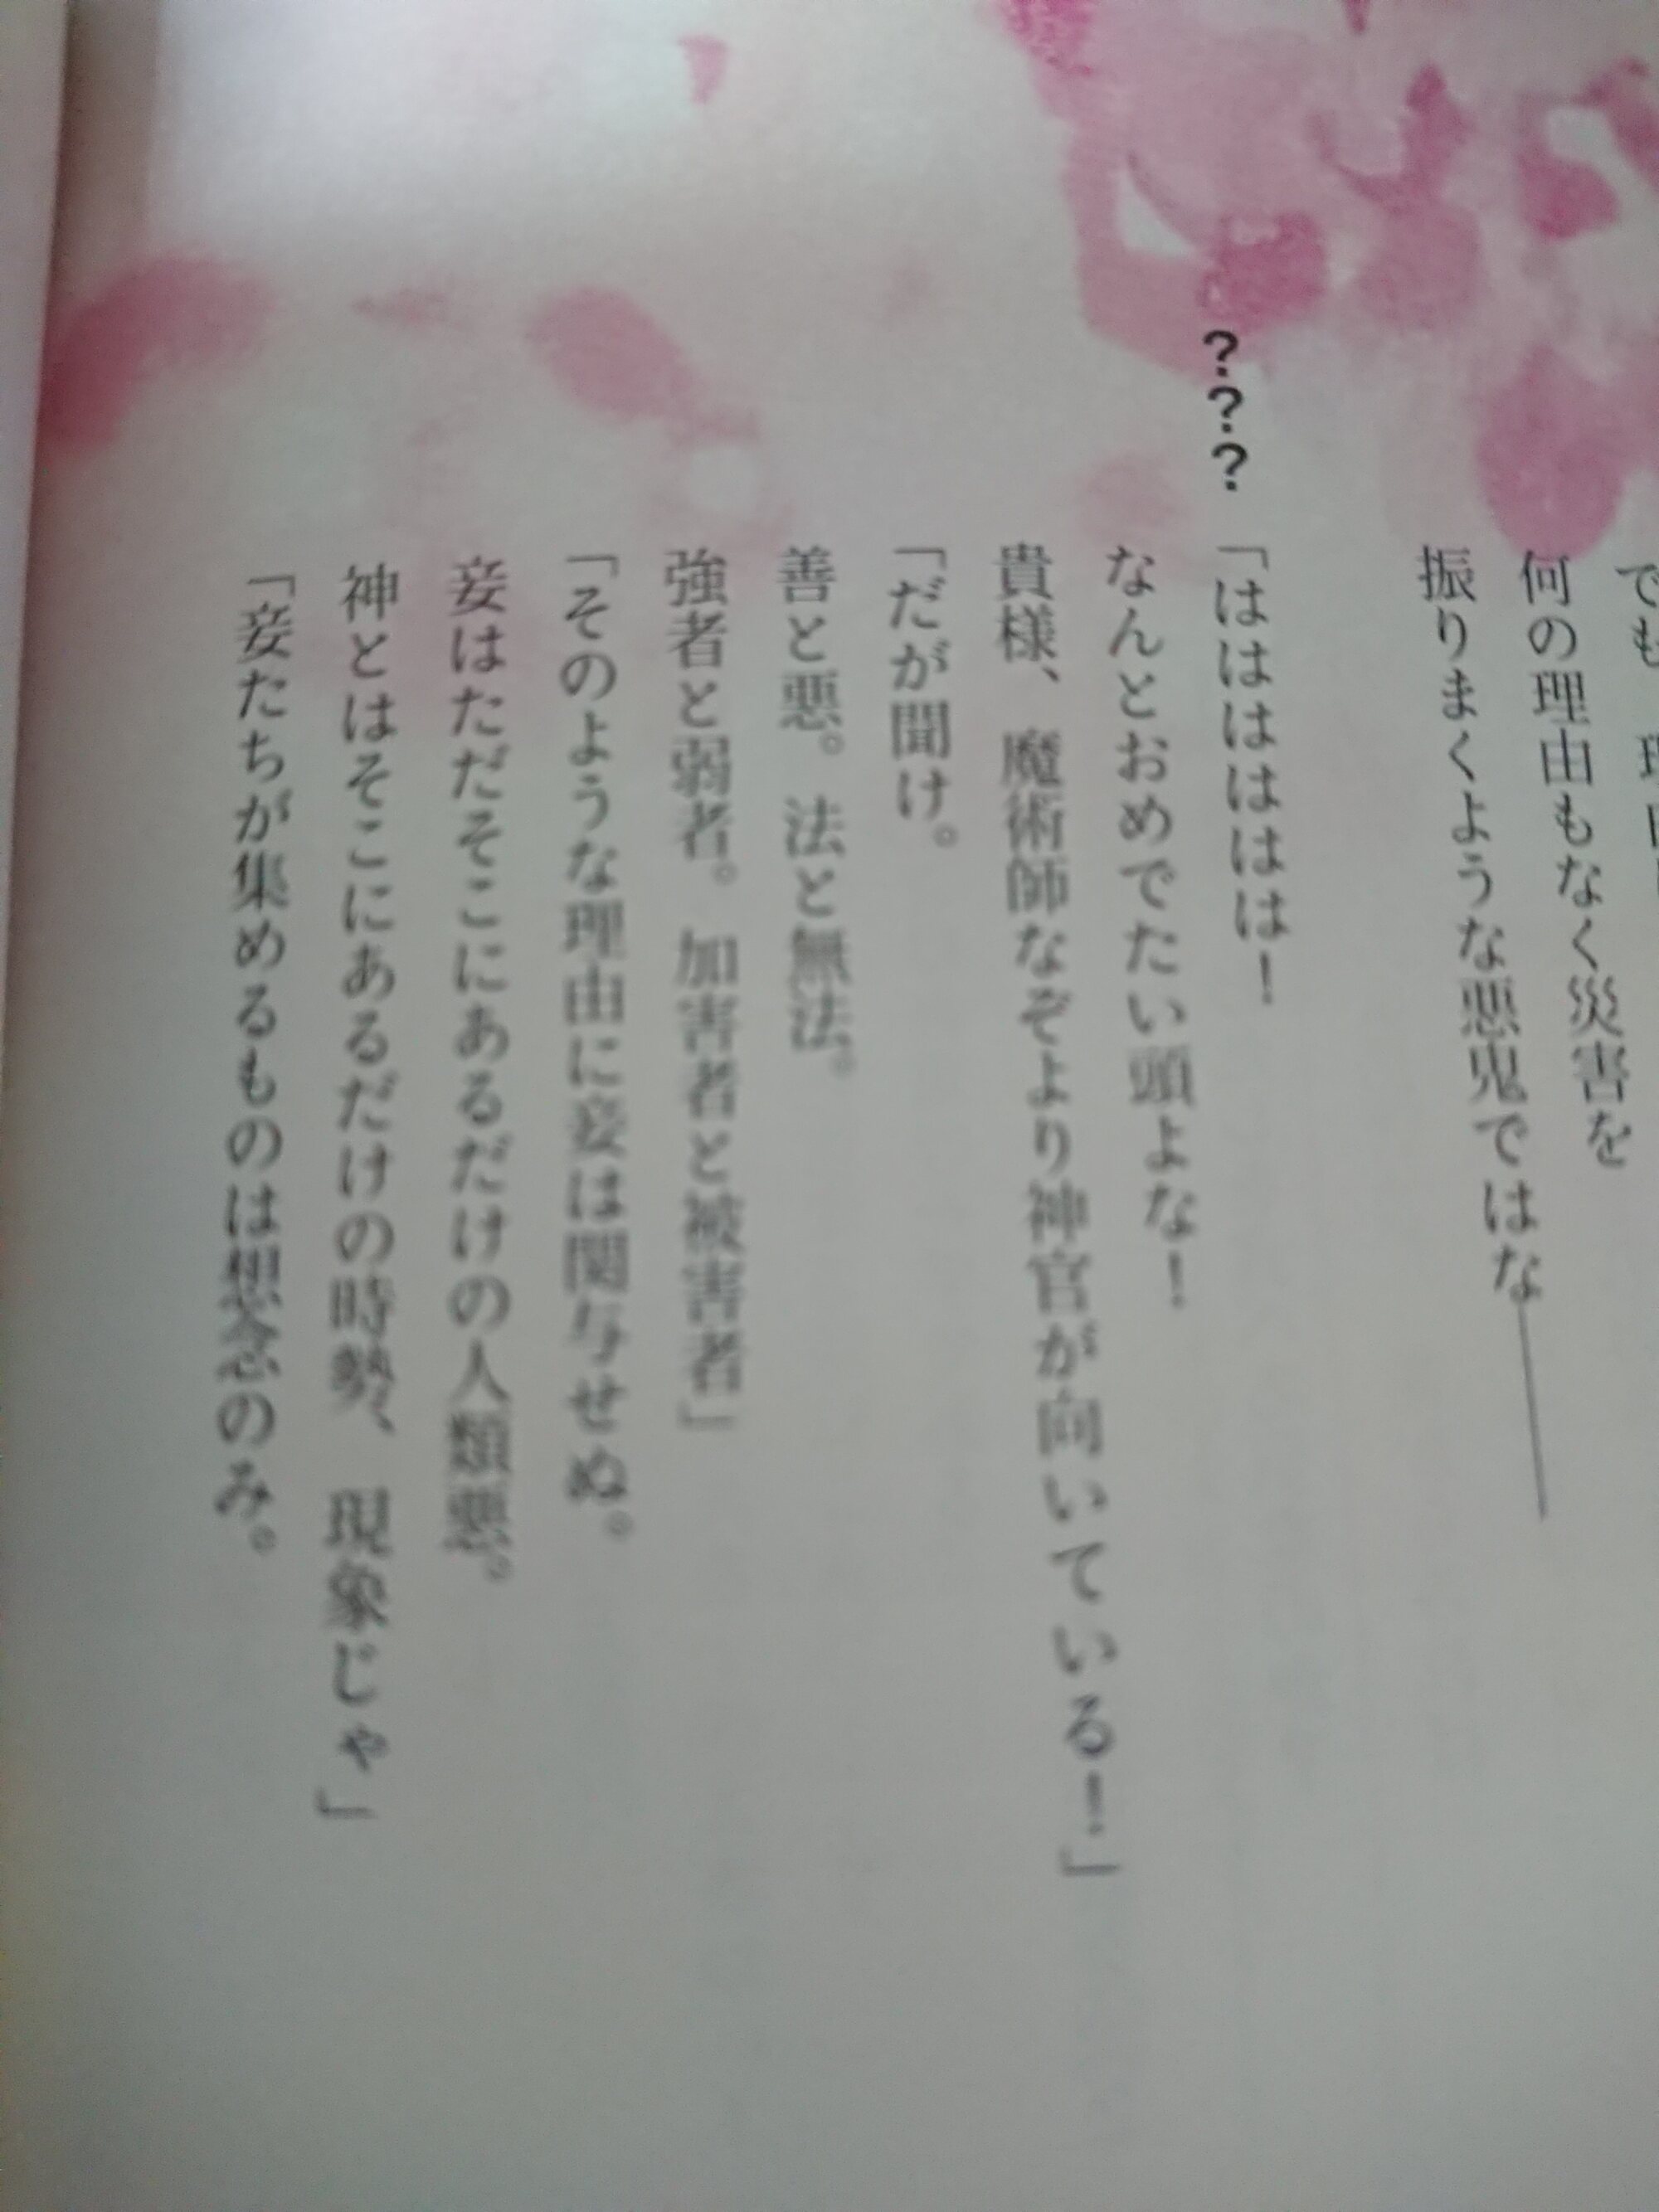 何の理由もなく災害を
振りまくような悪鬼ではな――
???「はははははは！
なんとおめでたい頭よな！
貴様、魔術師なぞより神官が向いている！」
「だが聞け。
善と悪。法と無法。
強者と弱者。加害者と被害者」
「そのような理由に妾は関与せぬ。
妾はただそこにあるだけの人類悪。
神とはそこにあるだけの時勢、現象じゃ」
「妾たちが集めるものは想念のみ。